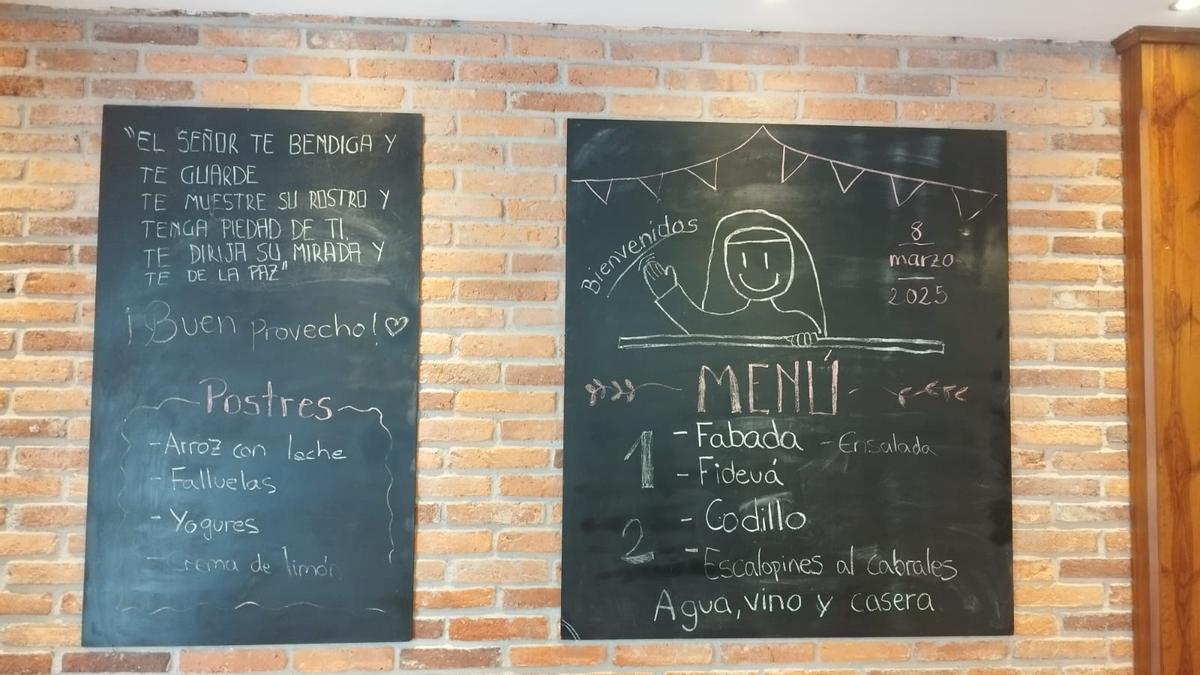 "EL SEÑOR TE BENDIGA Y
TE GUARDE
TE MUESTRE SU ROSTRO Y
TENGA PIEDAD DE TI,
TE DIRIJA SU MIRADA Y
TE DE LA PAZ"
¡Buen Provecho!
Postres
- Arroz con leche
- Falluelas
- Yogures
- Crema de limón
Bienvenidos
8
marzo
2025
MENÚ
1 - Fabada - Ensalada
- Fideuá
2 - Codillo
- Escalopines al Cabrales
Agua, vino y casera